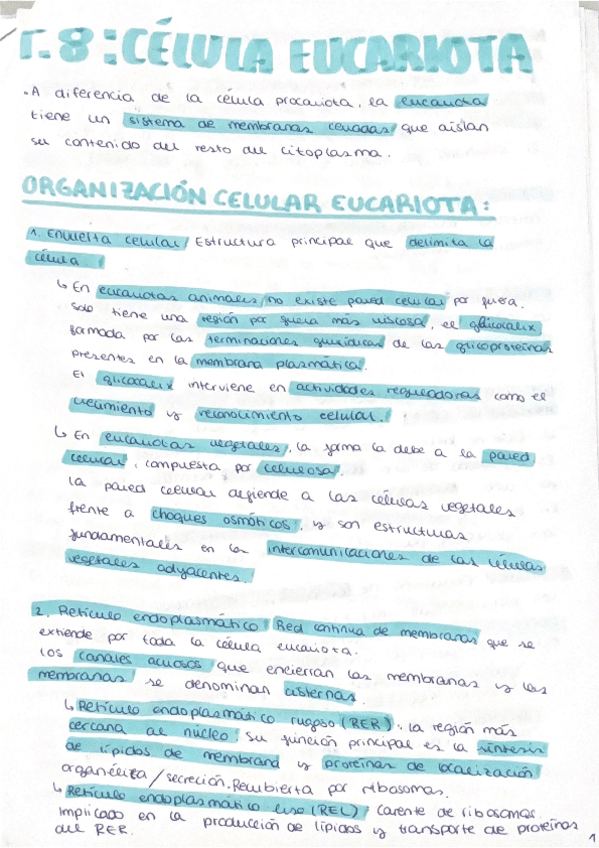 T.8: CÉLULA EUCARIOTA
·A diferencia de la célula procariota, la eucariota
tiene un sistema de membranas cerradas que aíslan
su contenido del resto del citoplasma.
ORGANIZACIÓN CELULAR EUCARIOTA:
1. Envuelta celular/ Estructura principal que delimita la
célula.
↳ En eucariotas animales/ no existe pared celular por fuera.
Solo tiene una región por fuera más viscosa, el glicocalix
formada por las terminaciones glucídicas de las glicoproteínas
presentes en la membrana plasmática.
El glicocalix interviene en actividades reguladoras como el
crecimiento y reconocimiento celular.
↳ En eucariotas vegetales, la forma la debe a la pared
celular, compuesta por celulosa.
La pared celular defiende a las células vegetales
frente a choques osmóticos, y son estructuras
fundamentales en las intercomunicaciones de las células
vegetales adyacentes.
2. Retículo endoplasmático: Red continua de membranas que se
extiende por toda la célula eucariota.
Los canales acuosos que encierran las membranas y las
membranas se denominan cisternas.
↳ Retículo endoplasmático rugoso (RER): la región más
cercana al núcleo. Su función principal es la síntesis
de lípidos de membrana y proteínas de localización
organélica/secreción. Recubierta por ribosomas.
↳ Retículo endoplasmático liso (REL): Carente de ribosomas.
Implicado en la producción de lípidos y transporte de proteínas
del RER.
1